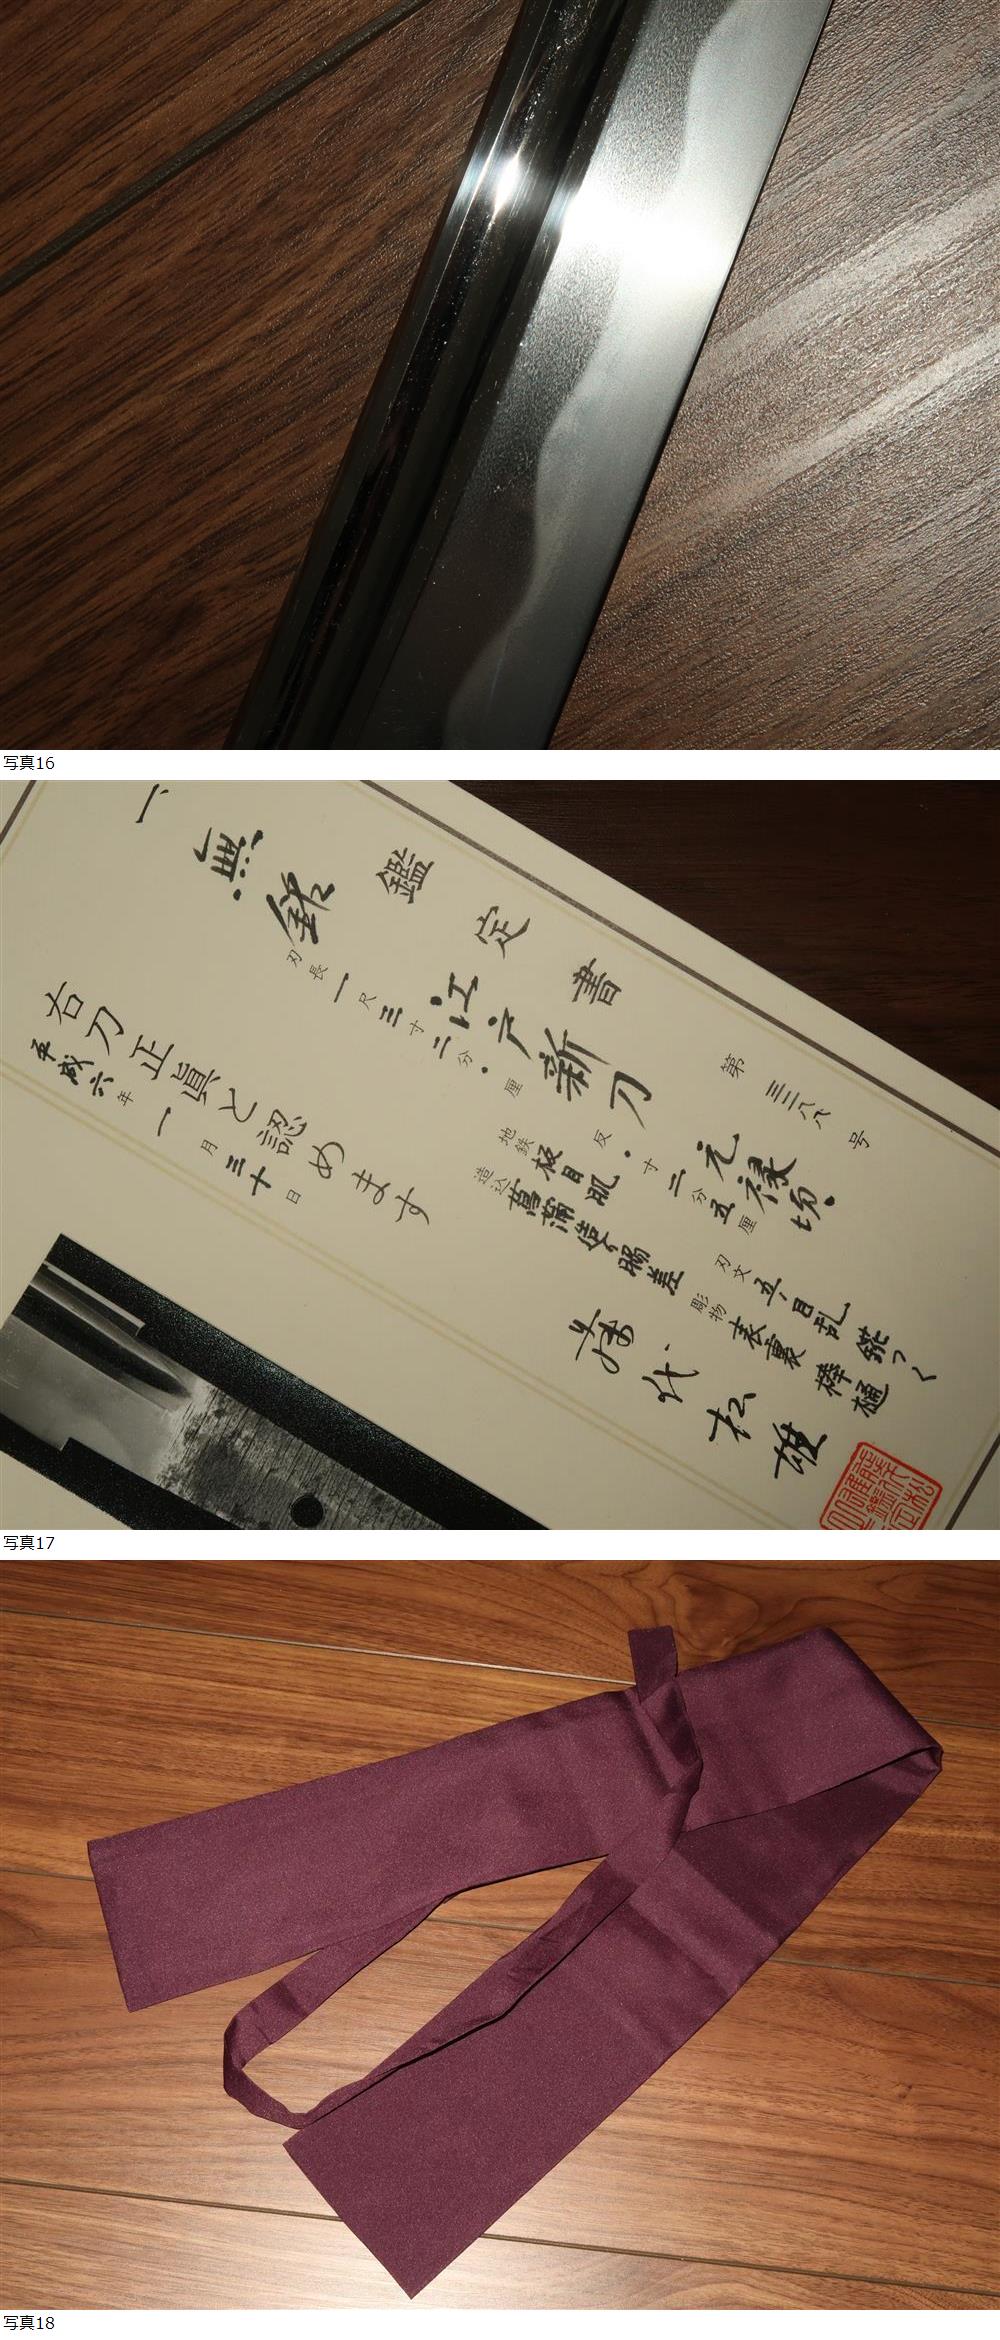 写真16
鑑定書
第三三八八号
一、無銘 江戸新刀 元禄頃
刃長一尺三寸二分・厘 反・寸二分五厘 刃文 五ノ目乱 錵つく
地鉄 板目肌 彫物 表裏棒樋
造込 菖蒲造り脇差
右刀正眞と認めます
平成六年一月三十日
藤代松雄
写真17
写真18